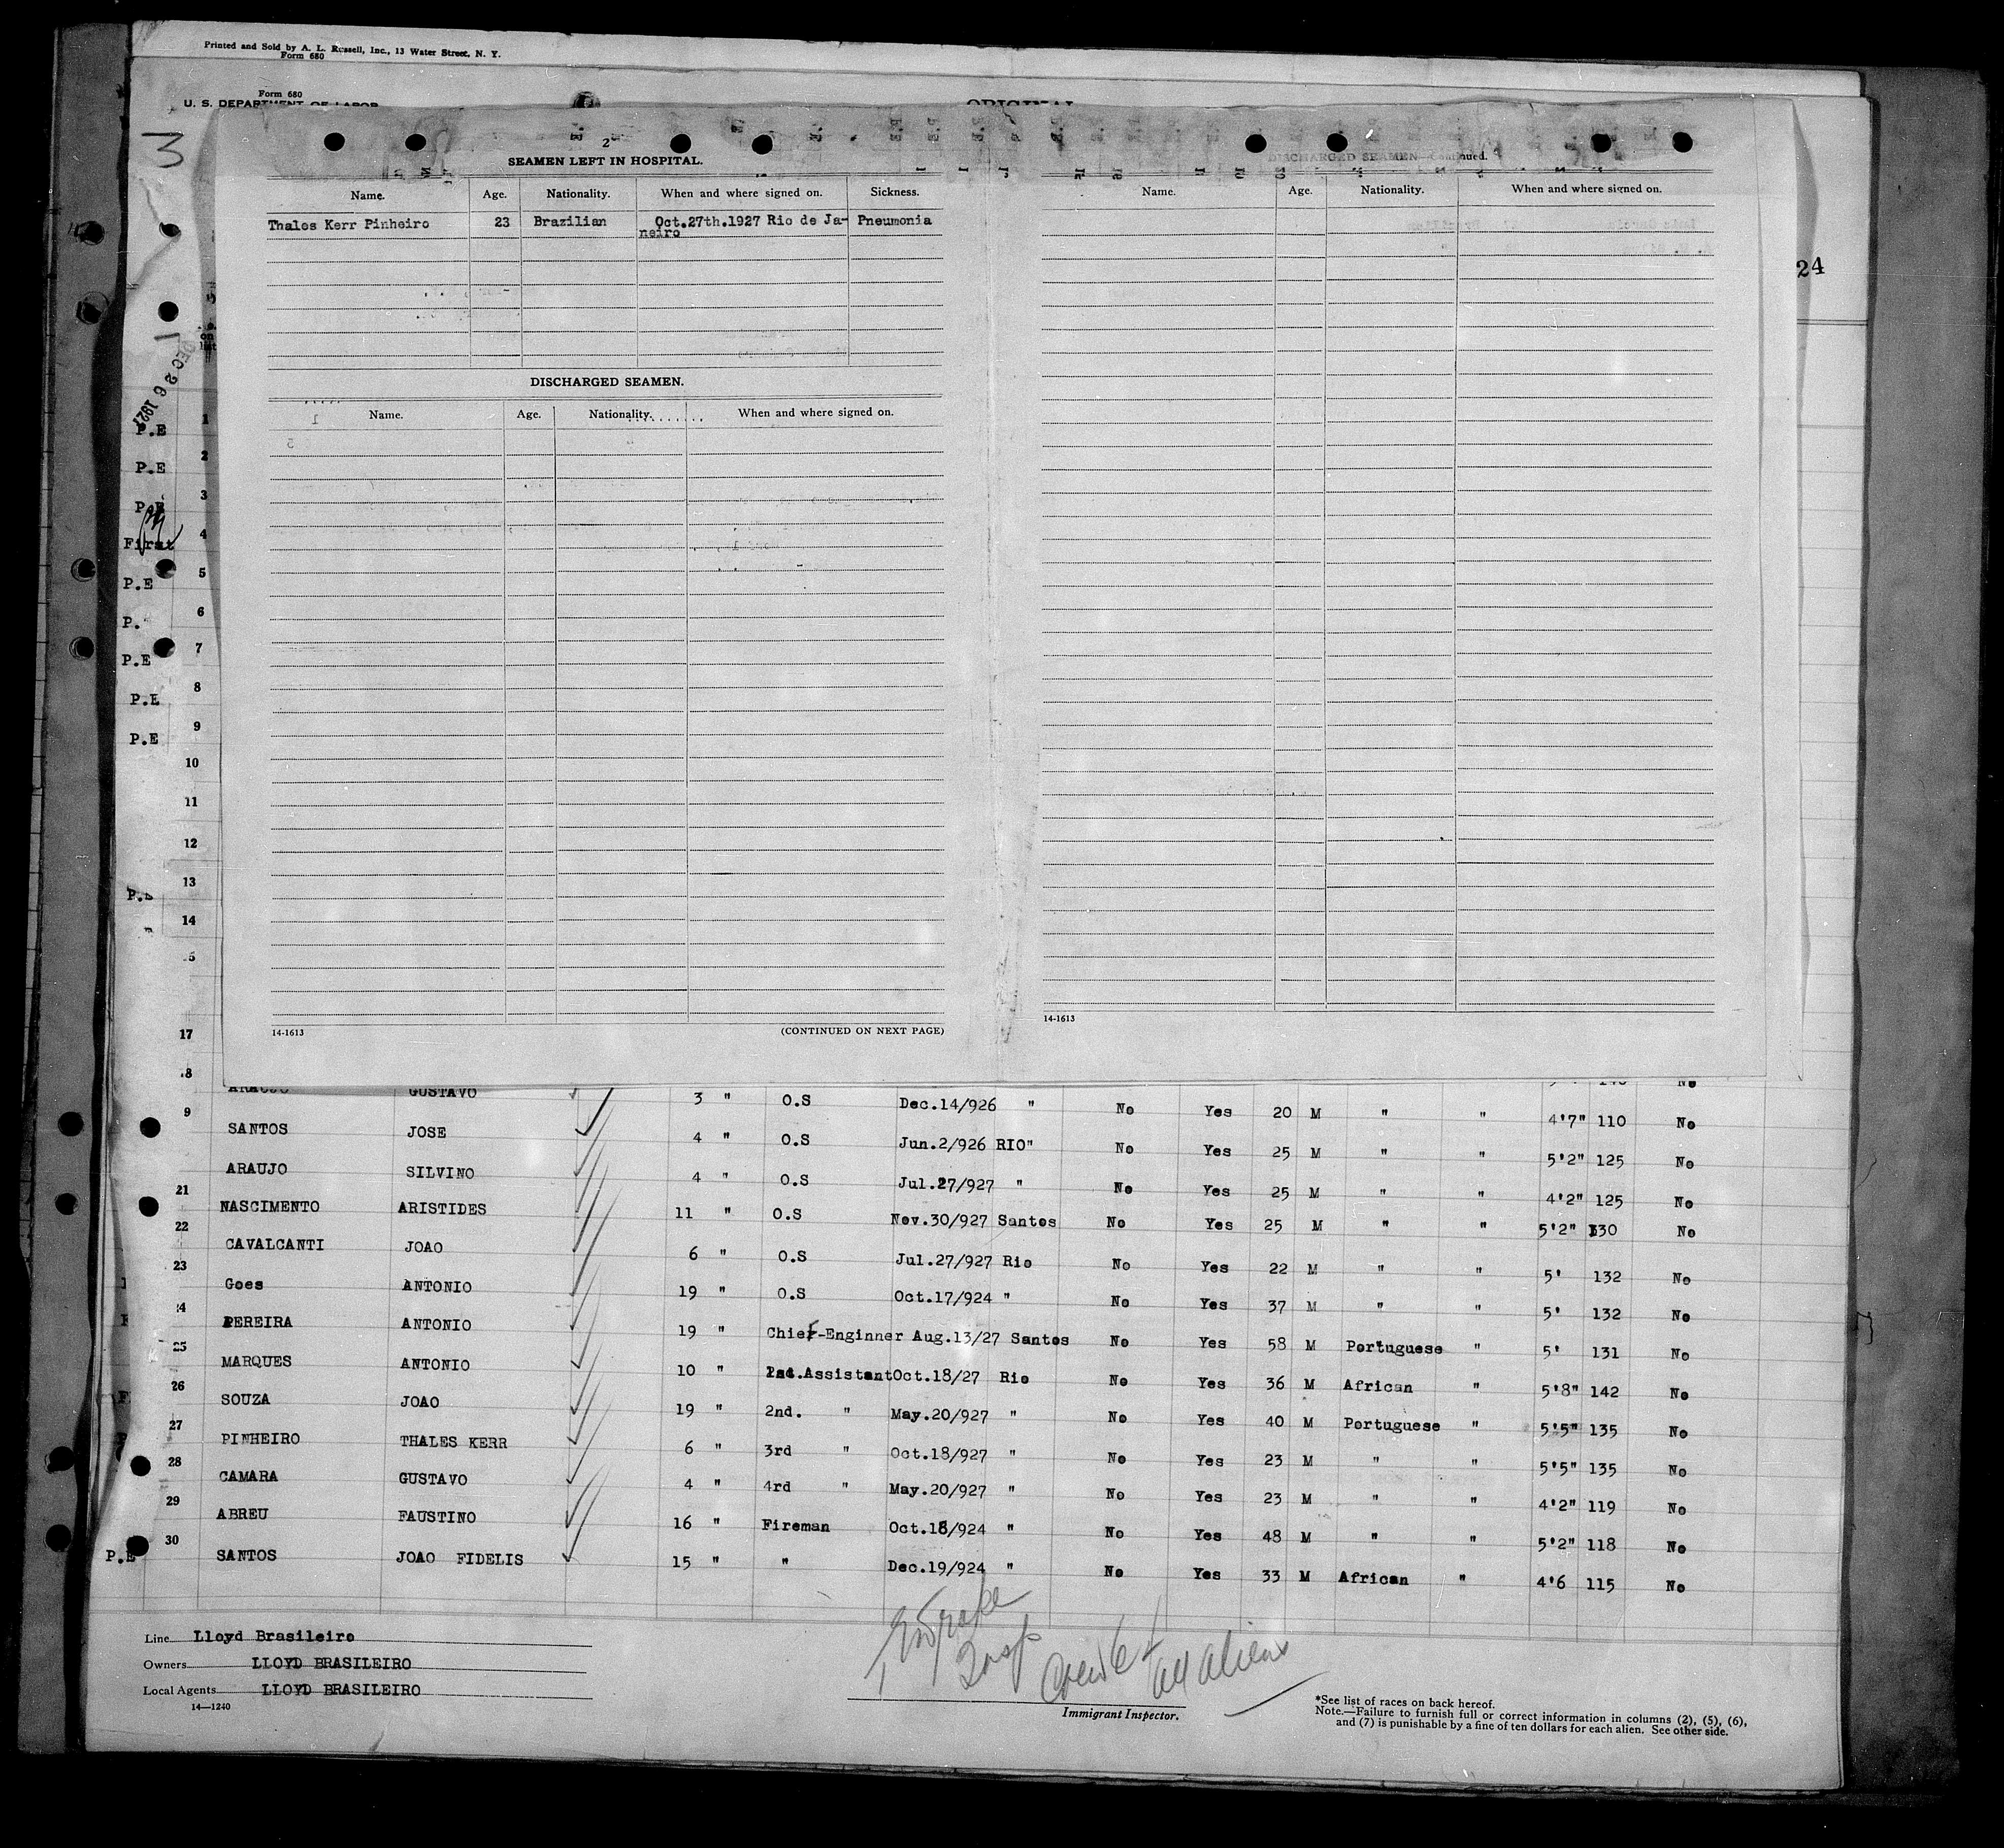 Printed and Sold by A. L. Russell, Inc., 13 Water Street, N. Y.
Form 680
Form 680
U. S. DEPARTMENT OF LABOR
ORIGINAL
3
24
DEC 26 1927
2
SEAMEN LEFT IN HOSPITAL.
Name. Age. Nationality. When and where signed on. Sickness.
Thales Kerr Pinheiro 23 Brazilian Oct.27th.1927 Rio de Ja- Pneumonia
neiro
DISCHARGED SEAMEN.
Name. Age. Nationality. When and where signed on.
14-1613 (CONTINUED ON NEXT PAGE)
DISCHARGED SEAMEN—Continued.
Name. Age. Nationality. When and where signed on.
14-1613
P.E 1
P.E 2
P.E 3
First 4
P.E 5
P. 6
P.E 7
P.E 8
P.E 9
10
11
12
13
14
17
ARAUJO GUSTAVO 3 " O.S Dec.14/926 " No Yes 20 M " " 4'7" 110 No
SANTOS JOSE 4 " O.S Jun.2/926 RIO" No Yes 25 M " " 5'2" 125 No
ARAUJO SILVINO 4 " O.S Jul.27/927 " No Yes 25 M " " 4'2" 125 No
21 NASCIMENTO ARISTIDES 11 " O.S Nov.30/927 Santos No Yes 25 M " " 5'2" 130 No
22 CAVALCANTI JOAO 6 " O.S Jul.27/927 Rio No Yes 22 M " " 5' 132 No
23 Goes ANTONIO 19 " O.S Oct.17/924 " No Yes 37 M " " 5' 132 No
24 PEREIRA ANTONIO 19 " Chief-Enginner Aug.13/27 Santos No Yes 58 M Portuguese " 5' 131 No
25 MARQUES ANTONIO 10 " Assistant Oct.18/27 Rio No Yes 36 M African " 5'8" 142 No
26 SOUZA JOAO 19 " 2nd. " May.20/927 " No Yes 40 M Portuguese " 5'5" 135 No
27 PINHEIRO THALES KERR 6 " 3rd " Oct.18/927 " No Yes 23 M " " 5'5" 135 No
28 CAMARA GUSTAVO 4 " 4rd " May.20/927 " No Yes 23 M " " 4'2" 119 No
29 ABREU FAUSTINO 16 " Fireman Oct.18/924 " No Yes 48 M " " 5'2" 118 No
30 P.E SANTOS JOAO FIDELIS 15 " " Dec.19/924 " No Yes 33 M African " 4'6 115 No
Line Lloyd Brasileiro
Owners LLOYD BRASILEIRO
Local Agents LLOYD BRASILEIRO
14—1240
Insp
Crew 61
all aliens
Immigrant Inspector.
*See list of races on back hereof.
Note.—Failure to furnish full or correct information in columns (2), (5), (6),
and (7) is punishable by a fine of ten dollars for each alien. See other side.